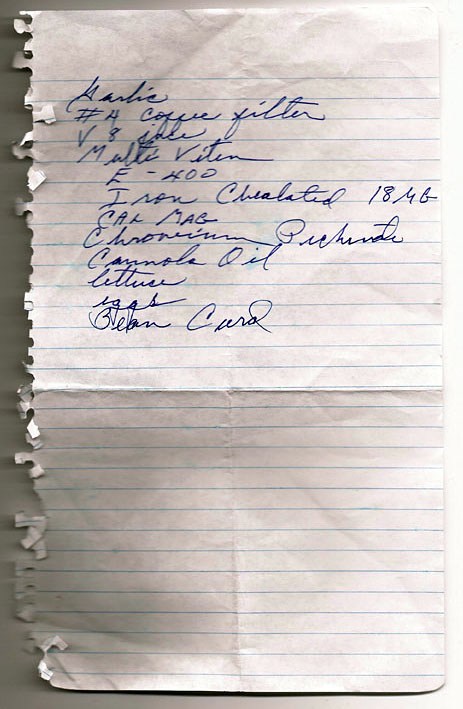 Garlic
#4 coffee filter
V 8
Multi Vitem
E - 400
Iron Chealated 18 MG
CAL MAG
Chromium
Cannola Oil
lettuce
eggs
Bean Curd